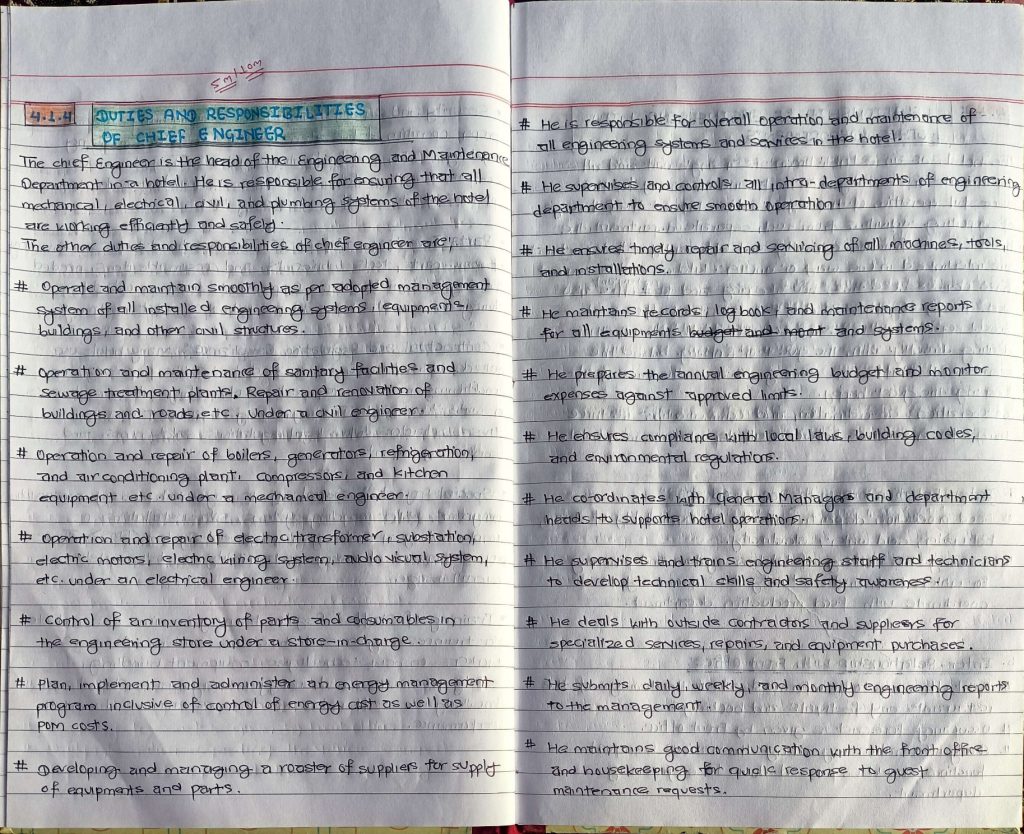 5m/10m
4.1.4 DUTIES AND RESPONSIBILITIES
OF CHIEF ENGINEER
The chief Engineer is the head of the Engineering and Maintenance
Department in a hotel. He is responsible for ensuring that all
mechanical, electrical, civil, and plumbing systems of the hotel
are working efficiently and safely.
The other duties and responsibilities of chief engineer are;
# Operate and maintain smoothly as per adopted management
system of all installed engineering systems, equipments,
buildings, and other civil structures.
# Operation and maintenance of sanitary facilities and
sewage treatment plants. Repair and renovation of
buildings and roads, etc. under a civil engineer.
# Operation and repair of boilers, generators, refrigeration,
and air conditioning plant, compressors, and kitchen
equipment etc. under a mechanical engineer.
# Operation and repair of electric transformer, substation,
electric motors, electric wiring system, audio visual system,
etc. under an electrical engineer.
# Control of an inventory of parts and consumables in
the engineering store under a store-in-charge.
# Plan, implement and administer an energy management
program inclusive of control of energy cost as well as
POM costs.
# Developing and managing a roaster of suppliers for supply
of equipments and parts.
# He is responsible for overall operation and maintenance of
all engineering systems and services in the hotel.
# He supervises and controls all intra-departments of engineering
department to ensure smooth operation.
# He ensures timely repair and servicing of all machines, tools,
and installations.
# He maintains records, log book, and maintenance reports
for all equipments budget and and systems.
# He prepares the annual engineering budget and monitor
expenses against approved limits.
# He ensures compliance with local laws, building codes,
and environmental regulations.
# He co-ordinates with General Managers and department
heads to supports hotel operations.
# He supervises and trains engineering staff and technicians
to develop technical skills and safety awareness.
# He deals with outside contractors and supplieers for
specialized services, repairs, and equipment purchases.
# He submits daily, weekly, and monthly engineering reports
to the management.
# He maintains good communication with the front office
and housekeeping for quick response to guest
maintenance requests.